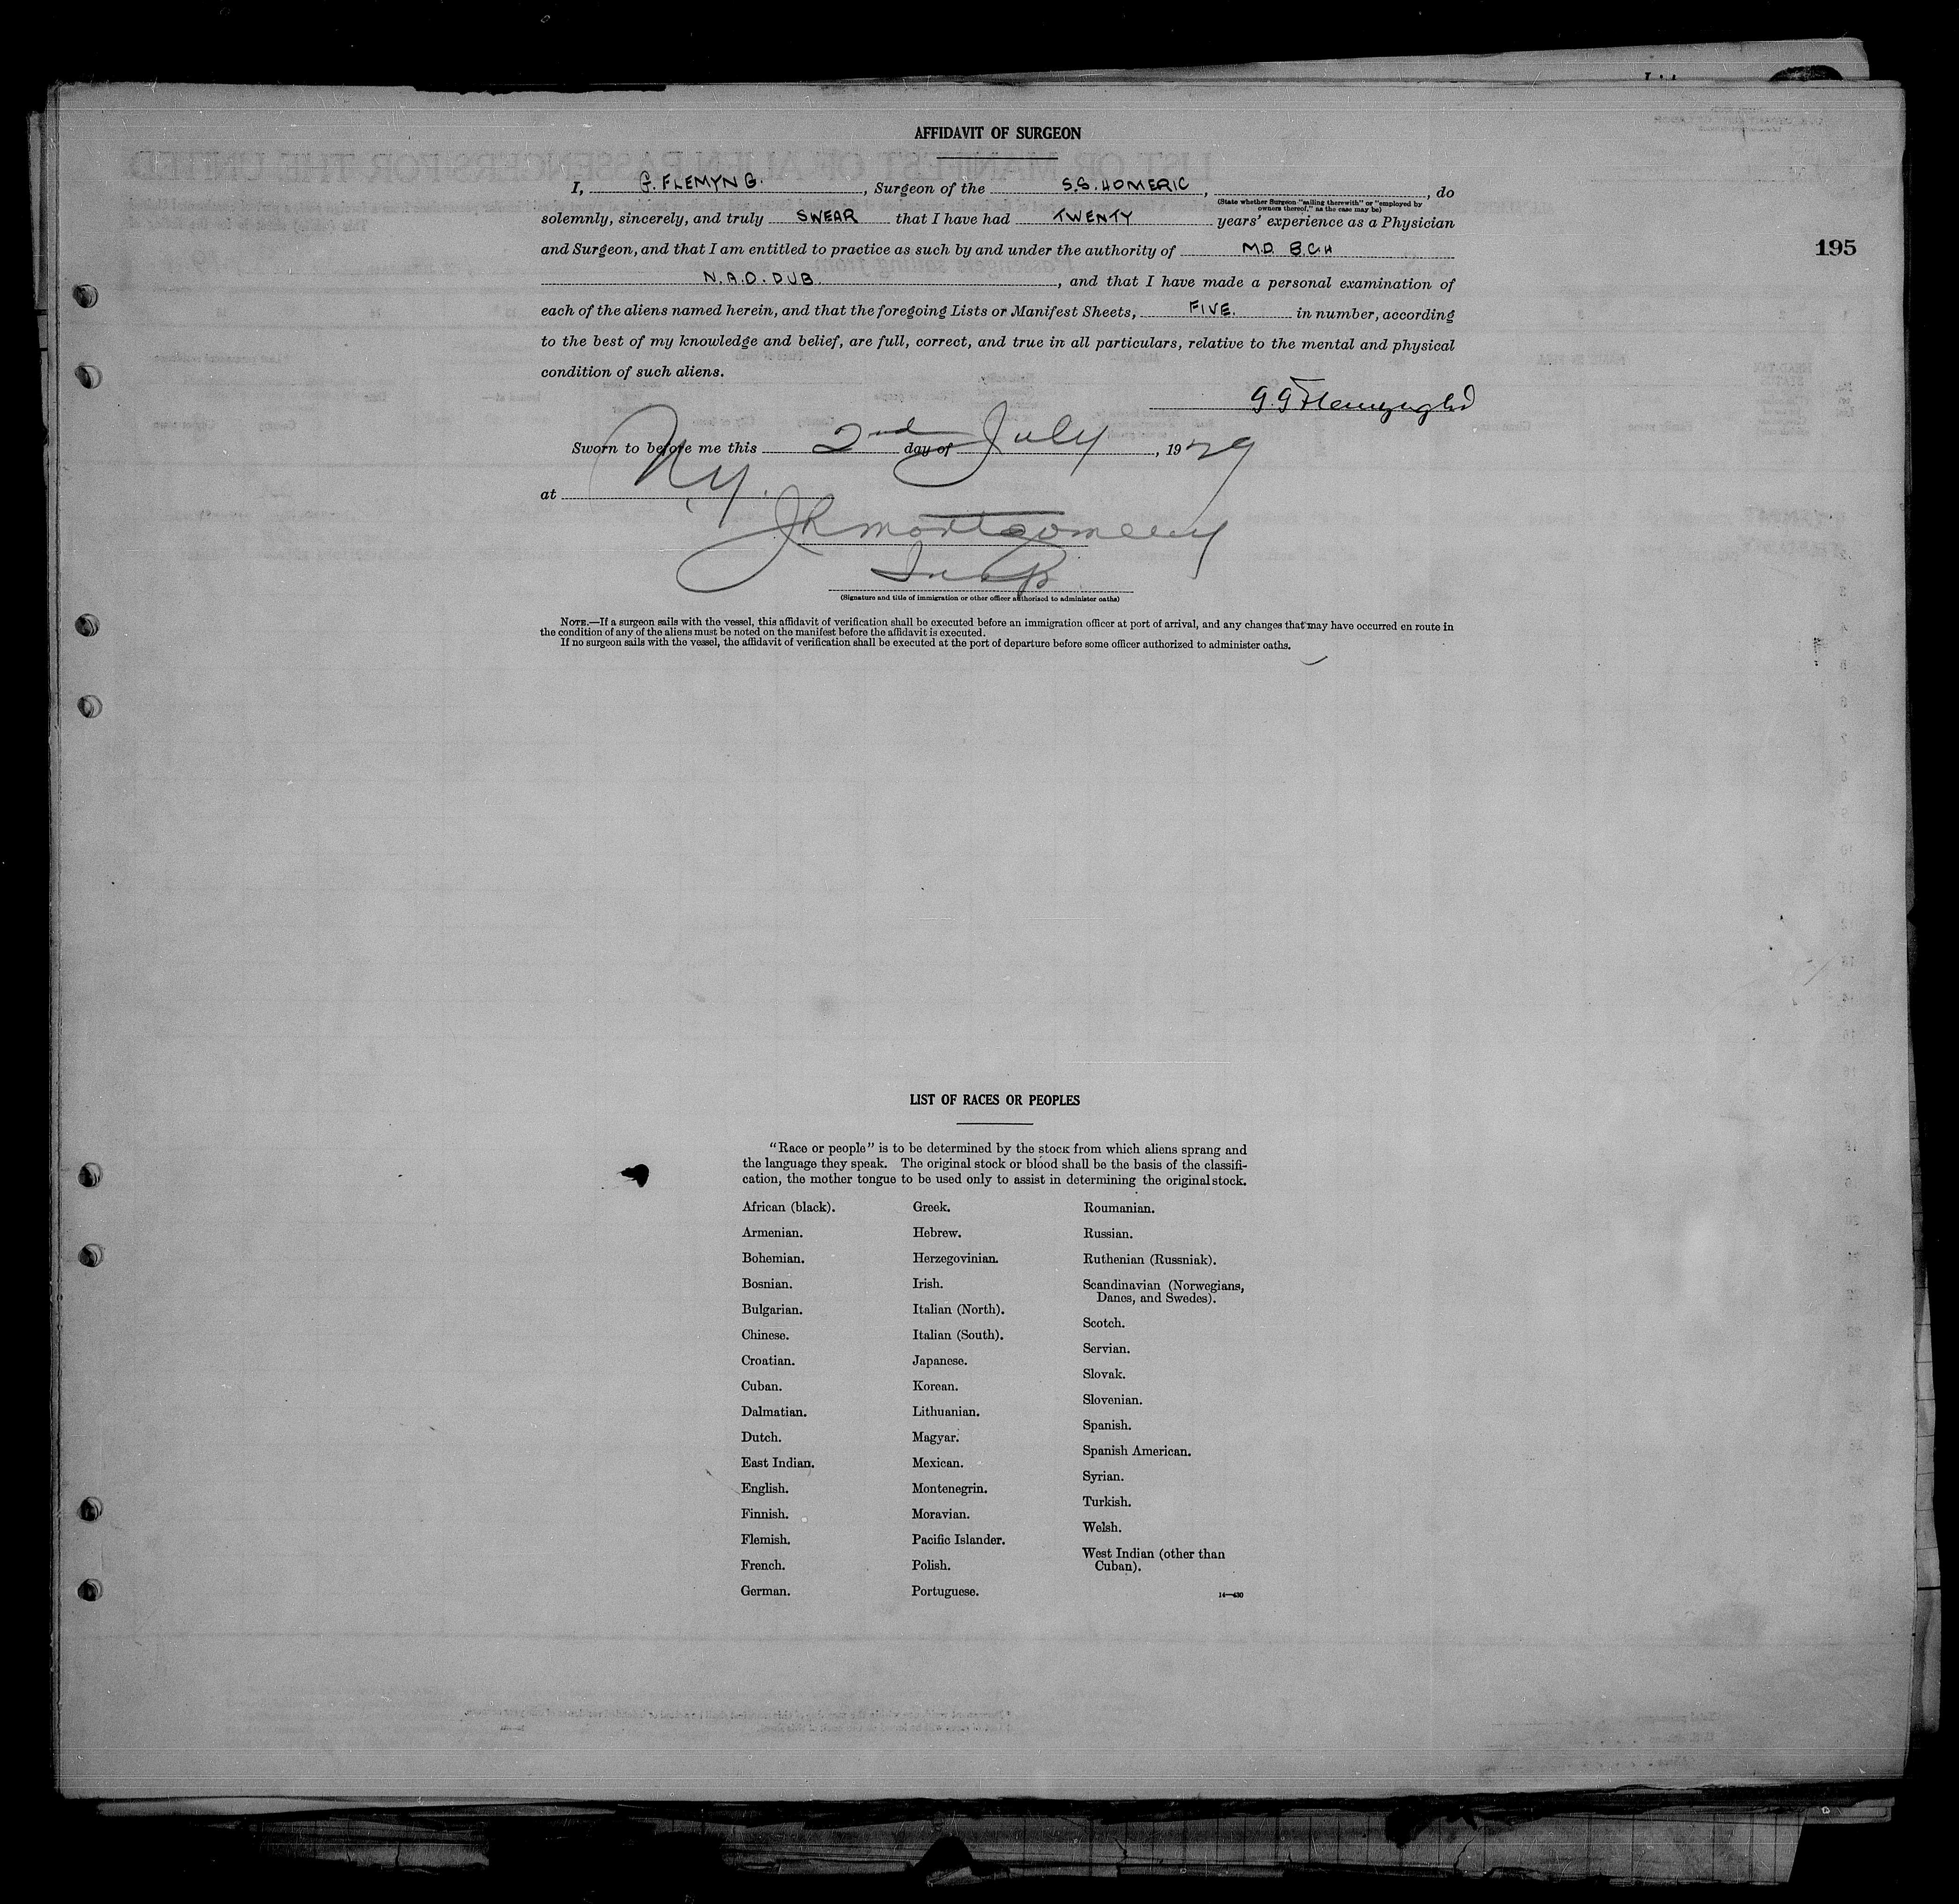 AFFIDAVIT OF SURGEON
I, G. FLEMYNG. , Surgeon of the S.S. HOMERIC , , do
(State whether Surgeon "sailing therewith" or "employed by
owners thereof," as the case may be)
solemnly, sincerely, and truly SWEAR that I have had TWENTY years' experience as a Physician
195
and Surgeon, and that I am entitled to practice as such by and under the authority of M.D. B.CH
N.A.O. DUB. , and that I have made a personal examination of
each of the aliens named herein, and that the foregoing Lists or Manifest Sheets, FIVE. in number, according
to the best of my knowledge and belief, are full, correct, and true in all particulars, relative to the mental and physical
condition of such aliens.
G. G Flemyng
Sworn to before me this 2nd day of July , 1929
at N.Y.
JR Montgomery
Insp
(Signature and title of immigration or other officer authorized to administer oaths)
NOTE.—If a surgeon sails with the vessel, this affidavit of verification shall be executed before an immigration officer at port of arrival, and any changes that may have occurred en route in
the condition of any of the aliens must be noted on the manifest before the affidavit is executed.
If no surgeon sails with the vessel, the affidavit of verification shall be executed at the port of departure before some officer authorized to administer oaths.
LIST OF RACES OR PEOPLES
"Race or people" is to be determined by the stock from which aliens sprang and
the language they speak. The original stock or blood shall be the basis of the classifi-
cation, the mother tongue to be used only to assist in determining the original stock.
African (black).
Armenian.
Bohemian.
Bosnian.
Bulgarian.
Chinese.
Croatian.
Cuban.
Dalmatian.
Dutch.
East Indian.
English.
Finnish.
Flemish.
French.
German.
Greek.
Hebrew.
Herzegovinian.
Irish.
Italian (North).
Italian (South).
Japanese.
Korean.
Lithuanian.
Magyar.
Mexican.
Montenegrin.
Moravian.
Pacific Islander.
Polish.
Portuguese.
Roumanian.
Russian.
Ruthenian (Russniak).
Scandinavian (Norwegians,
Danes, and Swedes).
Scotch.
Servian.
Slovak.
Slovenian.
Spanish.
Spanish American.
Syrian.
Turkish.
Welsh.
West Indian (other than
Cuban).
14—430